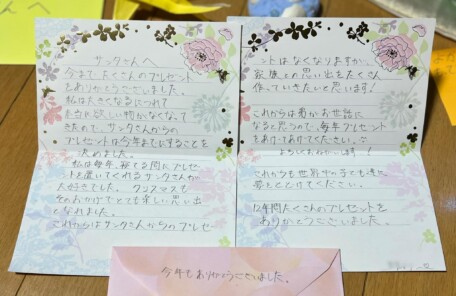 サンタさんへ
今までたくさんのプレゼント
をありがとうございました。
私は大きくなるにつれて
まだ欲しい物がなくなって
きたので、サンタさんからの
プレゼントは今年までにすることを
決めました。
私は毎年、寝てる間にプレゼ
ントを置いてくれるサンタさんが
大好きでした。クリスマスも
そのおかげでとても楽しい思い出
となりました。
これからはサンタさんからのプレゼ
ントはなくなりますが、
家族との思い出をたくさん
作っていきたいと思います!
これからは君がお世話に
なると思うので、毎年プレゼント
をあげてあげてください。
よろしくおねがいします!
これからも世界中の子ども達に
夢をとどけてください。
12年間たくさんのプレゼントを
ありがとうございました。
今年もありがとうございました。
んへ